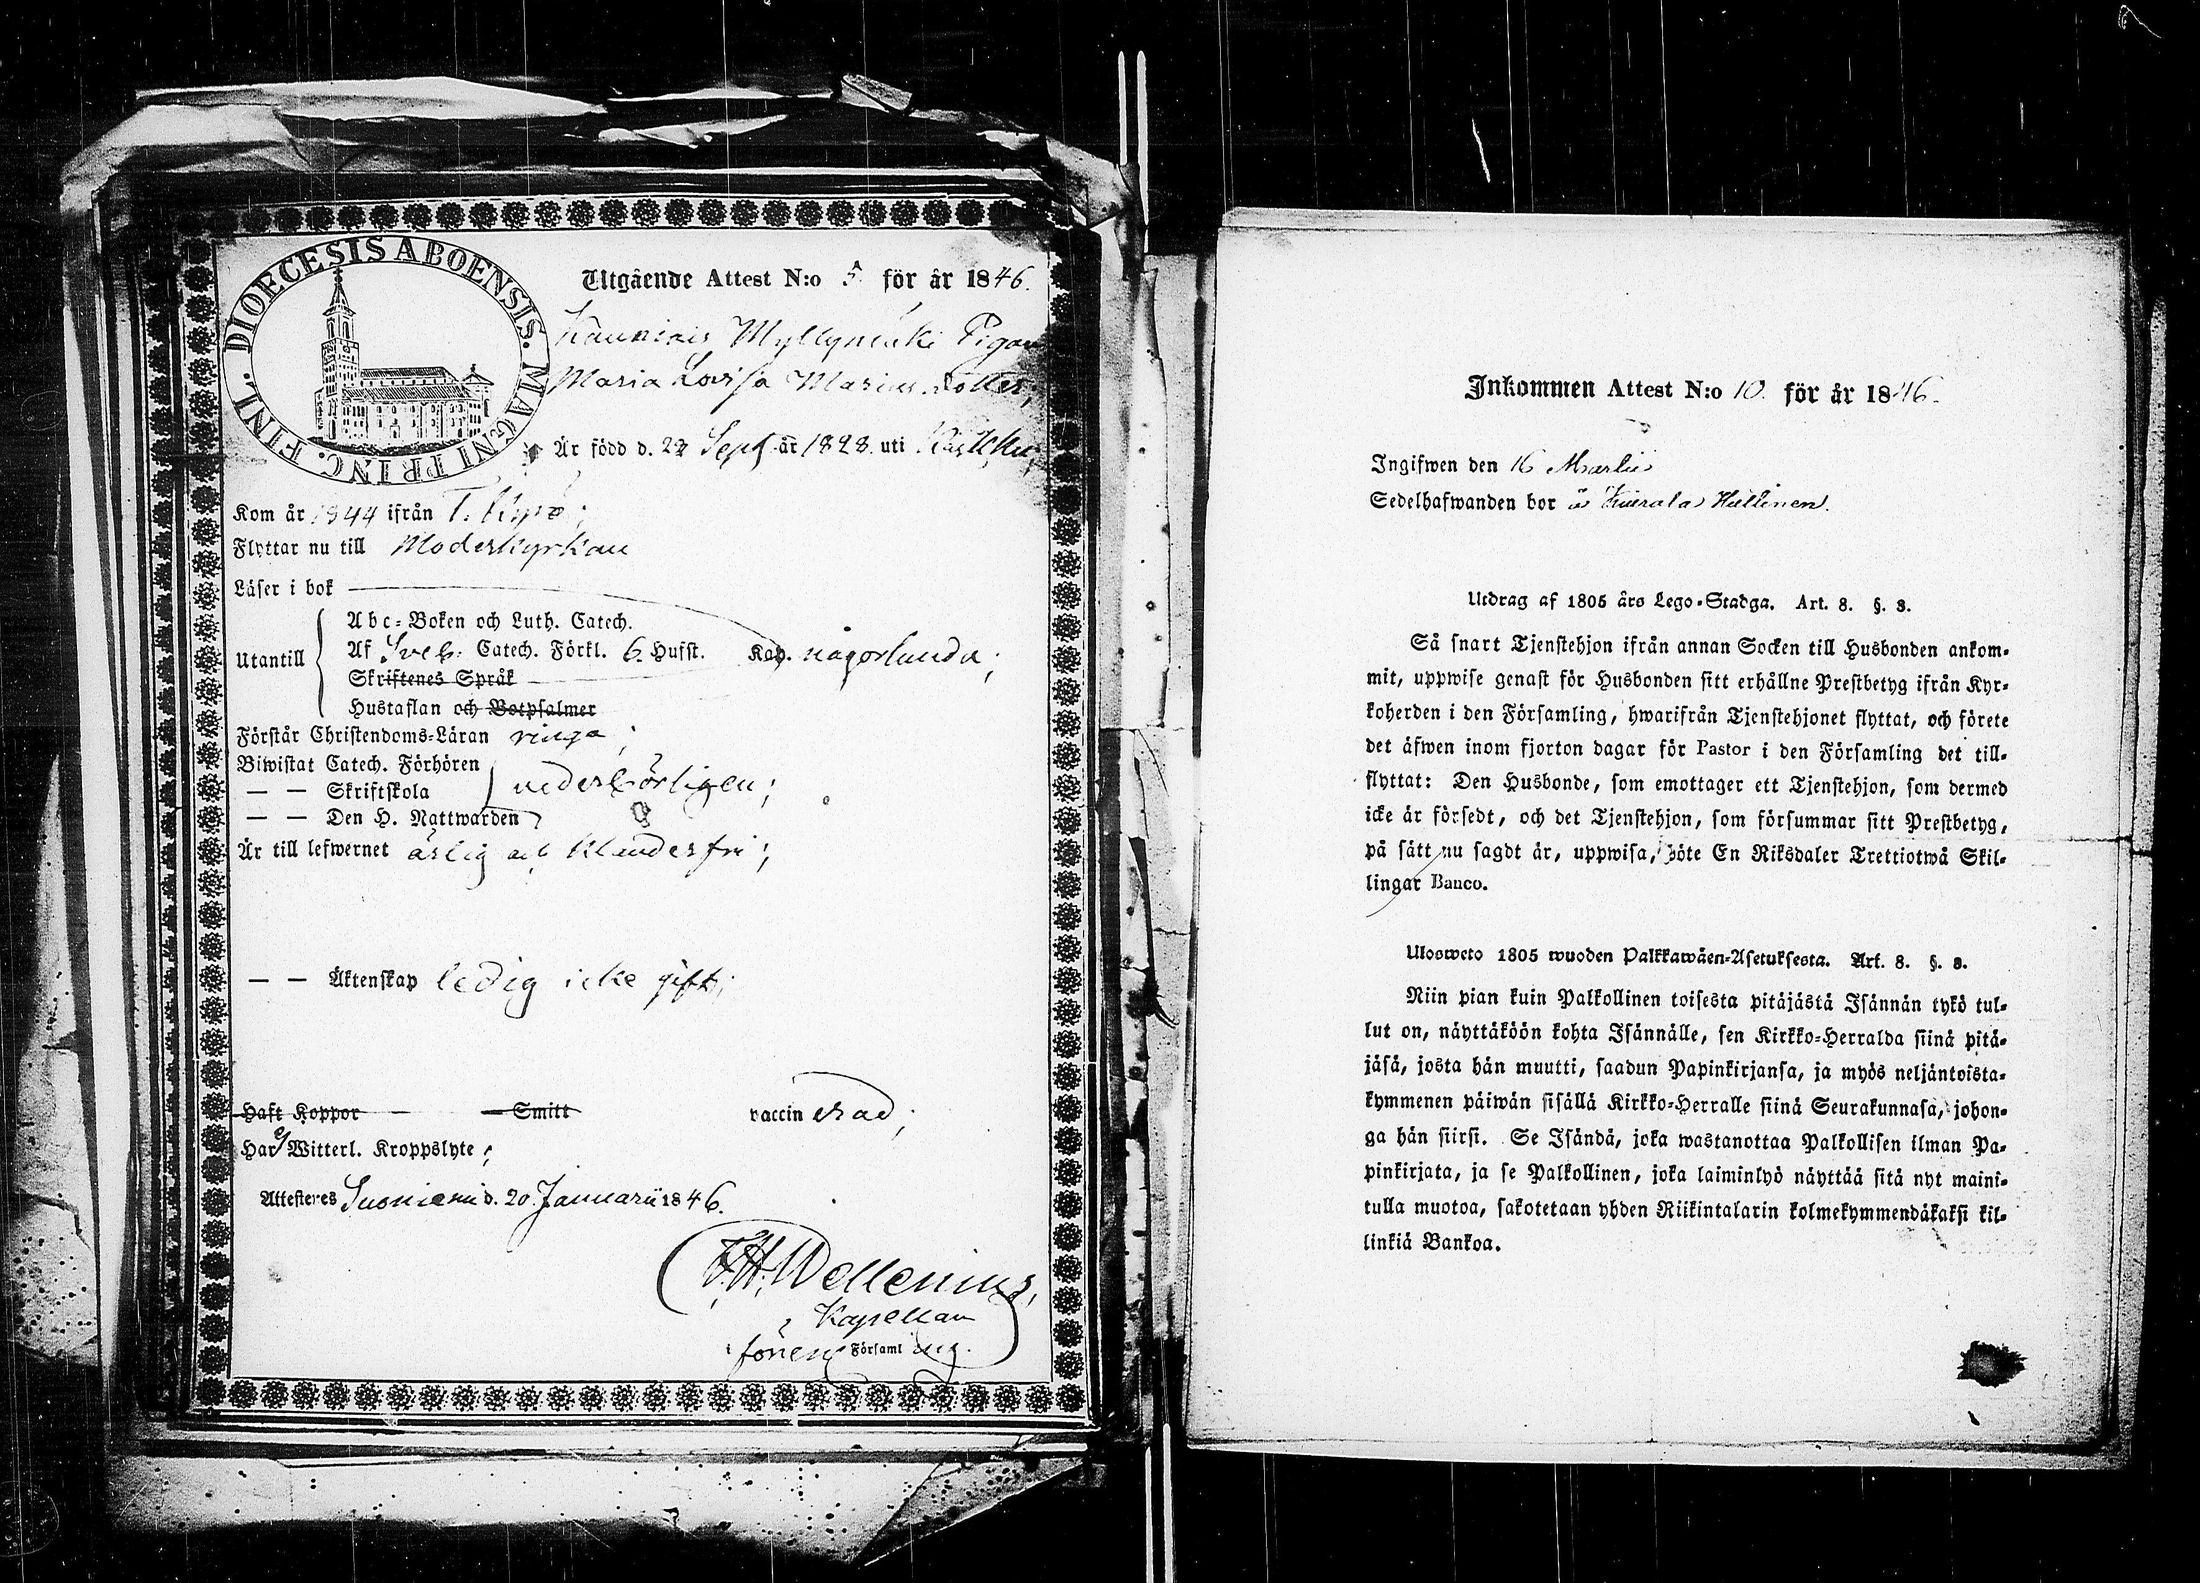 DIOECESIS ABOENSIS. MAGNI PRINC. FINL.
Utgående Attest N:o 5 för år 1846.
Myllymäki Pigan
Maria Lovisa dotter;
Är född d. Sept. år 1828. uti
Kom år 1844 ifrån T. Kyrö;
Flyttar nu till Moderkyrkan
Läser i bok
Utantill
Abc-Boken och Luth. Catech.
Af Sveb. Catech. Förkl. 6. Hufst. Kap. någorlunda;
Skriftenes Språk
Hustaflan och Botpsalmer
Förstår Christendoms-Läran ringa;
Biwistat Catech. Förhören
— — Skriftskola vederbörligen;
— — Den H. Nattwarden
Är till lefwernet ärlig och klanderfri;
— — Äktenskap ledig icke gift;
Haft Koppor — Smitt vaccinerad;
Har ej Witterl. Kroppslyte;
Attesteres Suoniemi d. 20 Januarii 1846.
F. H. Wellenius,
Kapellan
i fören. Församling.
Inkommen Attest N:o 10. för år 1846.
Ingifwen den 16 Martii
Sedelhafwanden bor
Utdrag af 1805 års Lego-Stadga. Art. 8. §. 3.
Så snart Tjenstehjon ifrån annan Socken till Husbonden ankom-
mit, uppwise genast för Husbonden sitt erhållne Prestbetyg ifrån Kyr-
koherden i den Församling, hwarifrån Tjenstehjonet flyttat, och förete
det äfwen inom fjorton dagar för Pastor i den Församling det till-
flyttat: Den Husbonde, som emottager ett Tjenstehjon, som dermed
icke är försedt, och det Tjenstehjon, som försummar sitt Prestbetyg,
på sätt nu sagdt är, uppwisa, böte En Riksdaler Trettiotwå Skil-
lingar Banco.
Ulosweto 1805 wuoden Palkkawäen-Asetuksesta. Art. 8. §. 3.
Niin pian kuin Palkollinen toisesta pitäjästä Isännän tykö tul-
lut on, näyttäköön kohta Isännälle, sen Kirkko-Herralda siinä pitä-
jäsä, josta hän muutti, saadun Papinkirjansa, ja myös neljäntoista-
kymmenen päiwän sisällä Kirkko-Herralle siinä Seurakunnasa, johon-
ga hän siirsi. Se Isändä, joka wastanottaa Palkollisen ilman Pa-
pinkirjata, ja se Palkollinen, joka laiminlyö näyttää sitä nyt maini-
tulla muotoa, sakotetaan yhden Riikintalarin kolmekymmendäkaksi kil-
linkiä Bankoa.